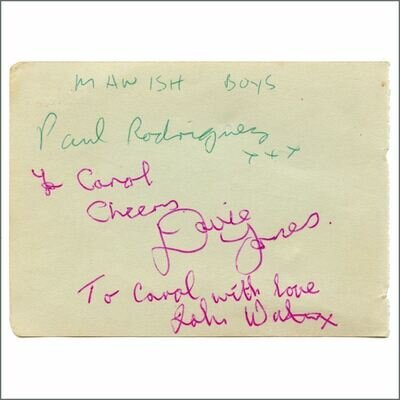 MANISH BOYS
Paul Rodriguez
xxx
To Carol
Cheers
Davie
Jones.
To Carol with love
John